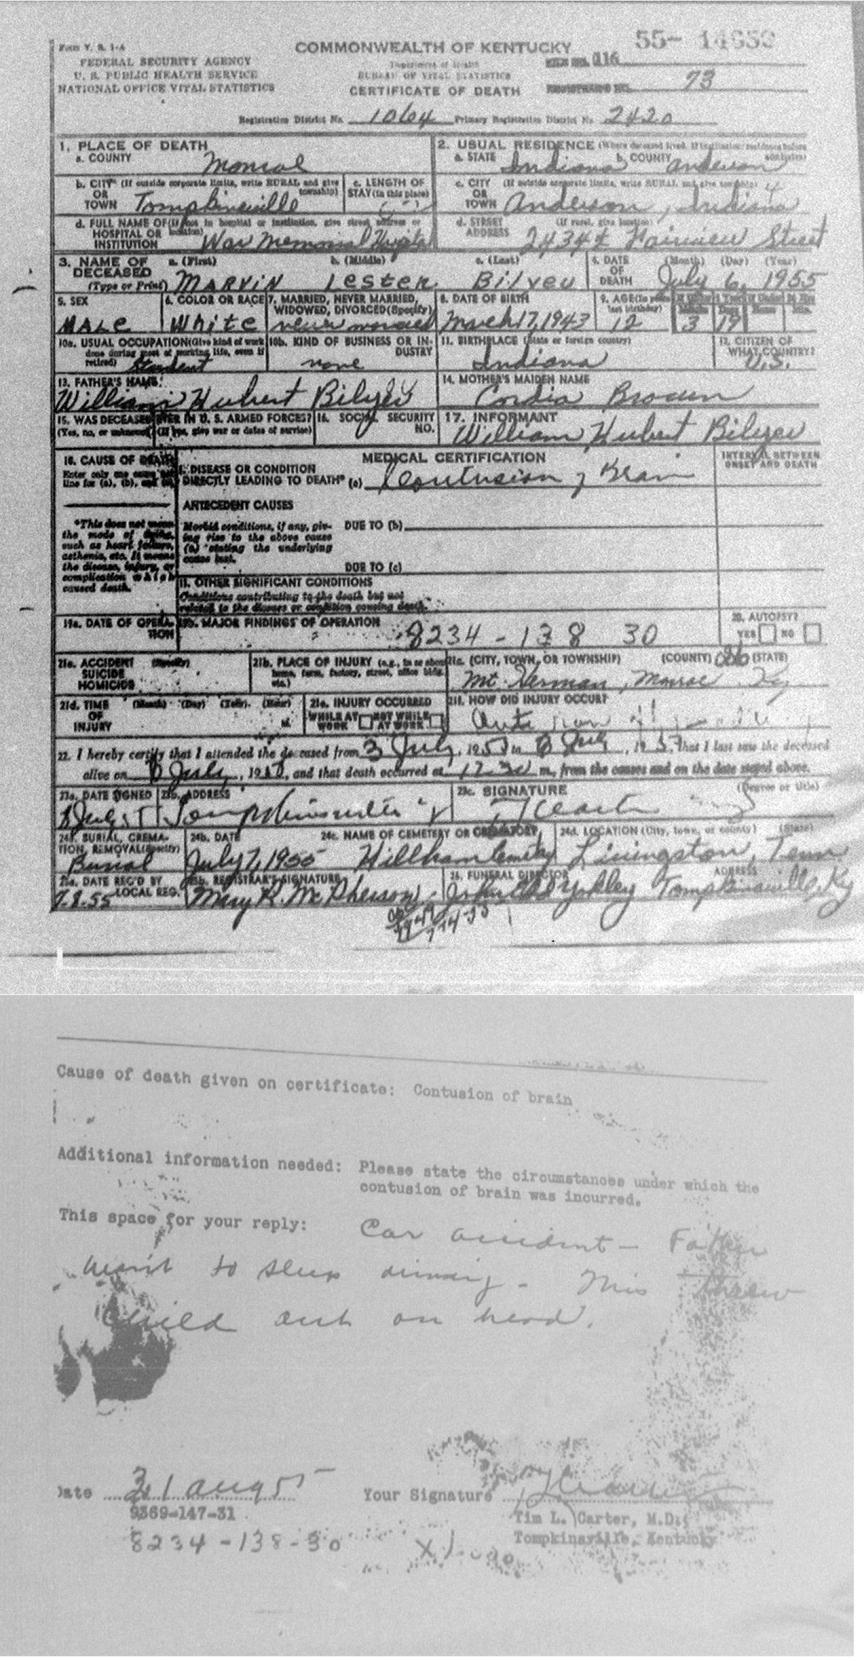 Form V. S. 1-A
FEDERAL SECURITY AGENCY
U. S. PUBLIC HEALTH SERVICE
NATIONAL OFFICE VITAL STATISTICS
COMMONWEALTH OF KENTUCKY
Department of Health
BUREAU OF VITAL STATISTICS
CERTIFICATE OF DEATH
55- 14653
FILE NO. 116
REGISTRAR'S NO. 73
Registration District No. 1064 Primary Registration District No. 2420
1. PLACE OF DEATH
a. COUNTY Monroe
2. USUAL RESIDENCE (Where deceased lived. If institution: residence before admission)
a. STATE Indiana b. COUNTY Anderson
b. CITY (If outside corporate limits, write RURAL and give township)
OR TOWN Tompkinsville
c. LENGTH OF STAY (in this place)
c. CITY (If outside corporate limits, write RURAL and give township)
OR TOWN Anderson, Indiana
d. FULL NAME OF (If not in hospital or institution, give street address or location)
HOSPITAL OR INSTITUTION War Memorial Hospital
d. STREET ADDRESS (If rural, give location)
2434 Fairview Street
3. NAME OF DECEASED (Type or Print)
a. (First) b. (Middle) c. (Last)
MARVIN Lester Bilyeu
4. DATE OF DEATH (Month) (Day) (Year)
July 6, 1955
5. SEX
MALE
6. COLOR OR RACE
White
7. MARRIED, NEVER MARRIED, WIDOWED, DIVORCED (Specify)
never married
8. DATE OF BIRTH
March 17, 1943
9. AGE (In years last birthday)
12 3 19
10a. USUAL OCCUPATION (Give kind of work done during most of working life, even if retired)
Student
10b. KIND OF BUSINESS OR INDUSTRY
none
11. BIRTHPLACE (State or foreign country)
Indiana
12. CITIZEN OF WHAT COUNTRY?
U.S.
13. FATHER'S NAME
William Hubert Bilyeu
14. MOTHER'S MAIDEN NAME
Cordia Brown
15. WAS DECEASED EVER IN U. S. ARMED FORCES?
(Yes, no, or unknown) (If yes, give war or dates of service)
16. SOCIAL SECURITY NO.
17. INFORMANT
William Hubert Bilyeu
18. CAUSE OF DEATH
Enter only one cause per line for (a), (b), and (c)
MEDICAL CERTIFICATION
INTERVAL BETWEEN ONSET AND DEATH
I. DISEASE OR CONDITION
DIRECTLY LEADING TO DEATH* (a) Contusion of Brain
*This does not mean the mode of dying, such as heart failure, asthenia, etc. It means the disease, injury, or complication which caused death.
ANTECEDENT CAUSES
Morbid conditions, if any, giving rise to the above cause (a) stating the underlying cause last.
DUE TO (b)
DUE TO (c)
II. OTHER SIGNIFICANT CONDITIONS
Conditions contributing to the death but not related to the disease or condition causing death.
19a. DATE OF OPERATION
19b. MAJOR FINDINGS OF OPERATION
8234 - 138 30
20. AUTOPSY?
YES NO
21a. ACCIDENT (Specify)
SUICIDE
HOMICIDE
21b. PLACE OF INJURY (e.g., in or about home, farm, factory, street, office bldg., etc.)
21c. (CITY, TOWN, OR TOWNSHIP) (COUNTY) 086 (STATE)
Mt Herman, Monroe Ky
21d. TIME OF INJURY (Month) (Day) (Year) (Hour) M.
21e. INJURY OCCURRED
WHILE AT WORK NOT WHILE AT WORK
21f. HOW DID INJURY OCCUR?
Auto
22. I hereby certify that I attended the deceased from 3 July, 195 to 6 July, 195 that I last saw the deceased
alive on 6 July, 19 , and that death occurred at 12:30 m., from the causes and on the date stated above.
23a. DATE SIGNED
23b. ADDRESS
Tompkinsville Ky
23c. SIGNATURE (Degree or title)
T L Carter
24a. BURIAL, CREMATION, REMOVAL (Specify)
Burial
24b. DATE
July 7, 1955
24c. NAME OF CEMETERY OR CREMATORY
Cemetery
24d. LOCATION (City, town, or county) (State)
Livingston, Tenn
25a. DATE REC'D BY LOCAL REG.
7-8-55
25b. REGISTRAR'S SIGNATURE
Mary R. McPherson
26. FUNERAL DIRECTOR ADDRESS
Yokley Tompkinsville, Ky
Cause of death given on certificate: Contusion of brain
Additional information needed: Please state the circumstances under which the
contusion of brain was incurred.
This space for your reply: Car accident - Father
went to sleep driving - This threw
child out on head.
Date 31 Aug 55 Your Signature T L Carter
9369-147-31
Tim L. Carter, M.D.
8234-138-30
Tompkinsville, Kentucky